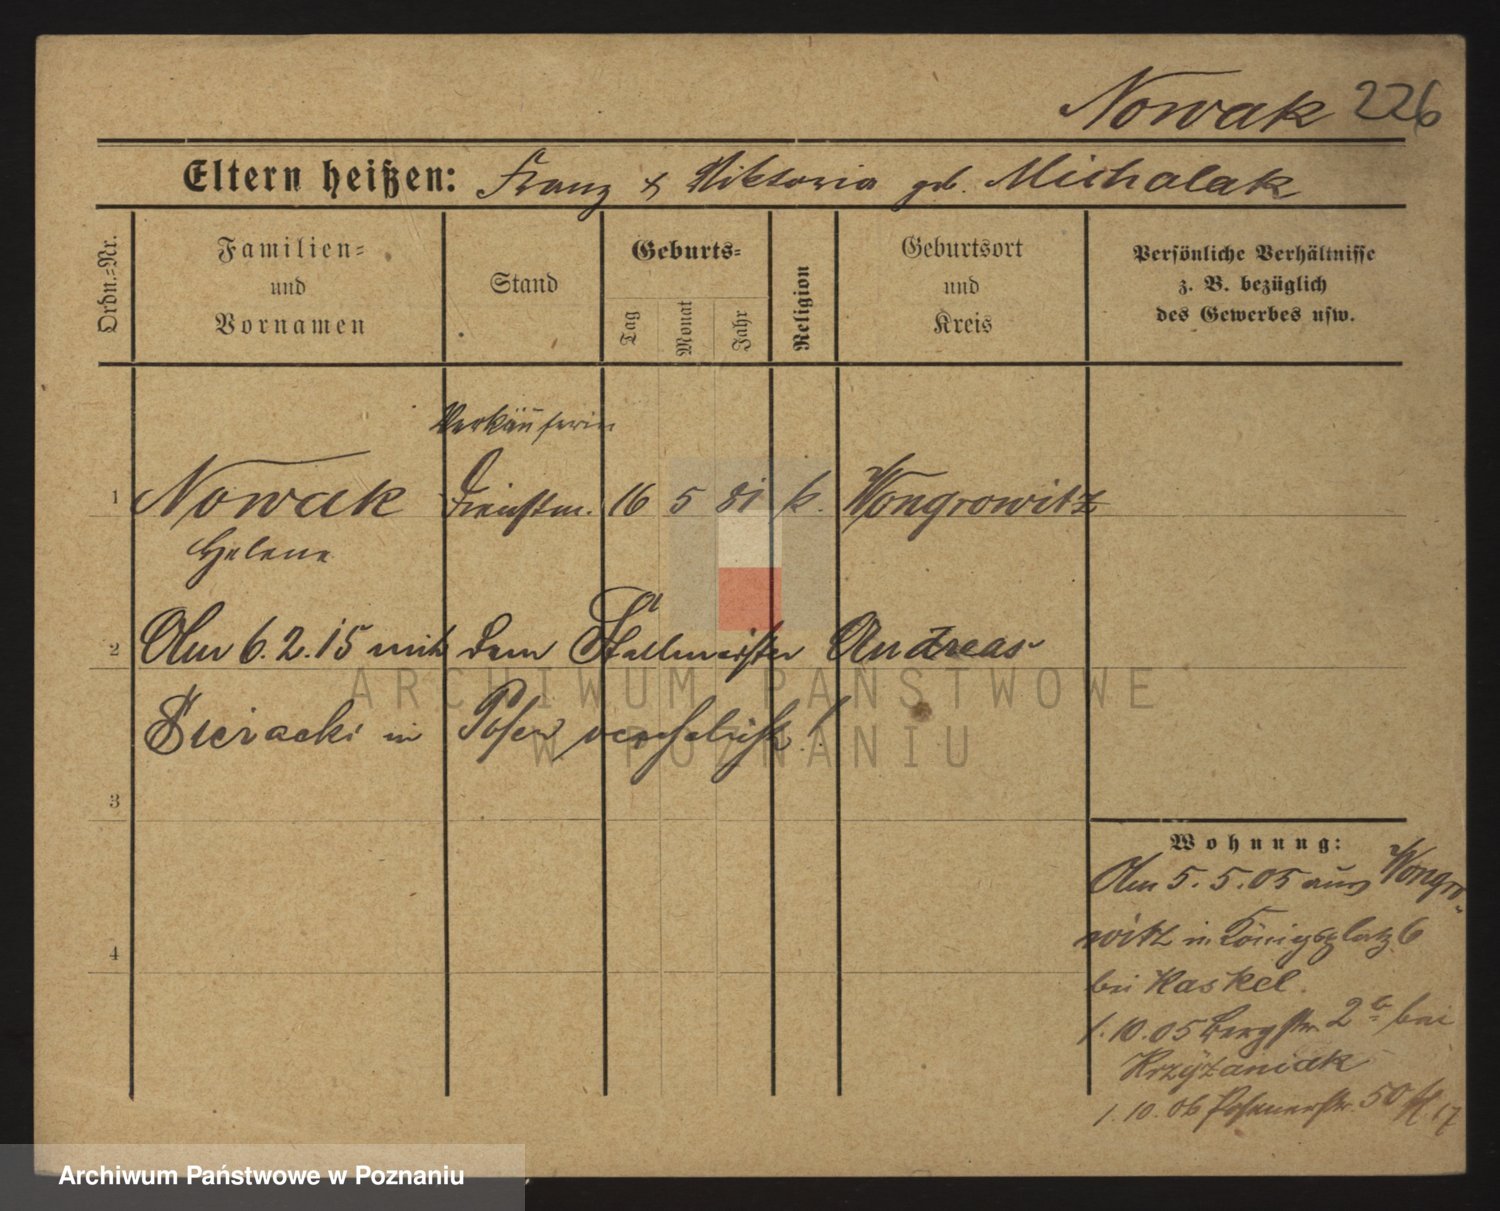 Nowak 226
Eltern heißen: Franz & Viktoria geb. Michalak
Ordn.-Nr.
Familien-
und
Vornamen
Stand
Geburts-
Tag
Monat
Jahr
Religion
Geburtsort
und
Kreis
Persönliche Verhältnisse
z. B. bezüglich
des Gewerbes usw.
Verkäuferin
1 Nowak Dienstm. 16 5 81 k. Wongrowitz
Helene
2 Am 6.2.15 mit dem Stallmeister Andreas
Sieracki in Posen verehelicht!
3
4
Wohnung:
Am 5.5.05 aus Wongro-
witz in Königsplatz 6
bei Kaskel.
1.10.05 Bergstr. 2b bei
Krzyżaniak
1.10.06 Posenerstr. 50
ARCHIWUM PAŃSTWOWE
W POZNANIU
Archiwum Państwowe w Poznaniu